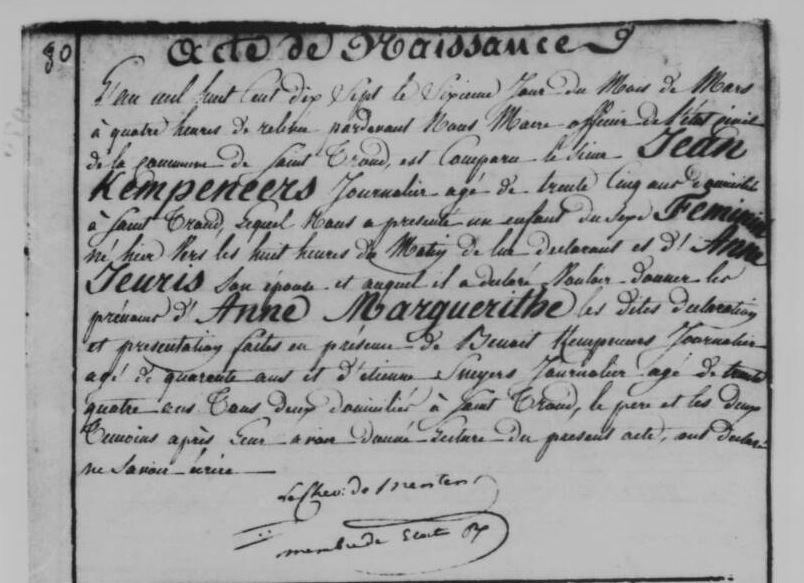 80 Acte de Naissance
L'an mil huit Cent dix Sept le Sixieme Jour du Mois de Mars
à quatre heures de relevée pardevant Nous Maire officier de l'état civil
de la commune de Saint Trond, est Comparu le Sieur Jean
Kempeneers Journalier agé de trente Cinq ans domicilié
à Saint Trond, Lequel Nous a presenté un enfant du Sexe Feminin
né hier Vers les huit heures du Matin de lui declarant et d'Anne
Jeuris Son épouse et auquel il a declaré Vouloir donner les
prénoms d'Anne Marguerithe les dites declaration
et presentation faites en présence de Benoit Kempeneers Journalier
agé de quarante ans et d'etienne Smeyers Journalier agé de trente
quatre ans Tous deux domiciliés à Saint Trond, le pere et les deux
Temoins après Leur avoir donné Lecture du present acte, ont declaré
ne Savoir écrire
Le Chev: de Menten
membre de